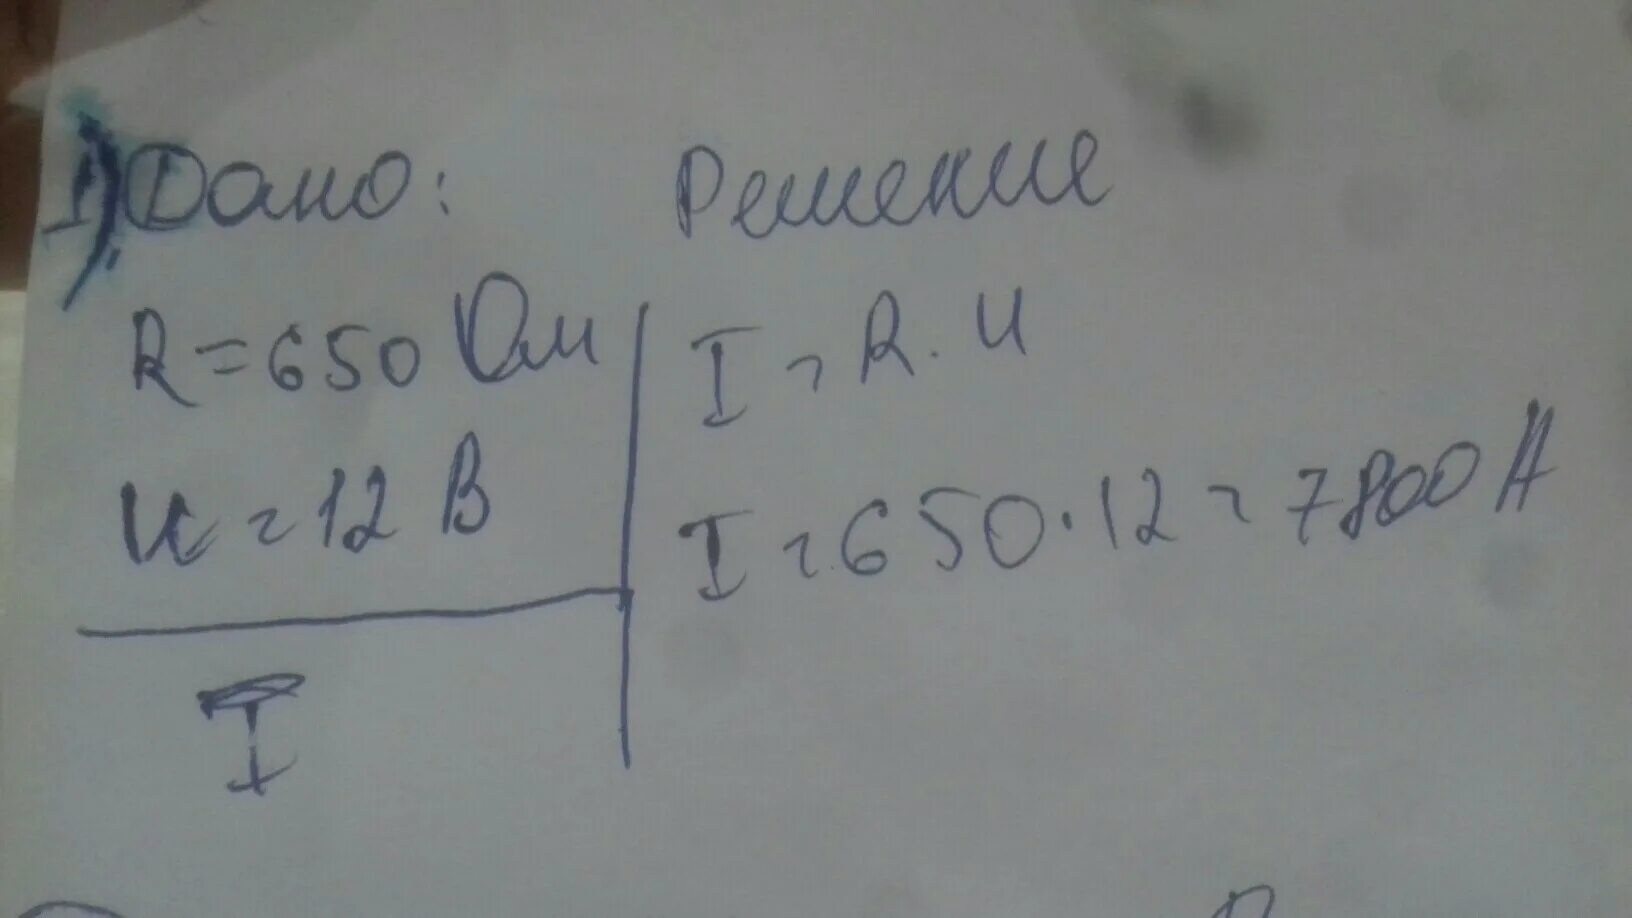 1) Дано:
R = 650 Ом
U = 12 В
I
Решение
I = R · U
I = 650 · 12 = 7800 А